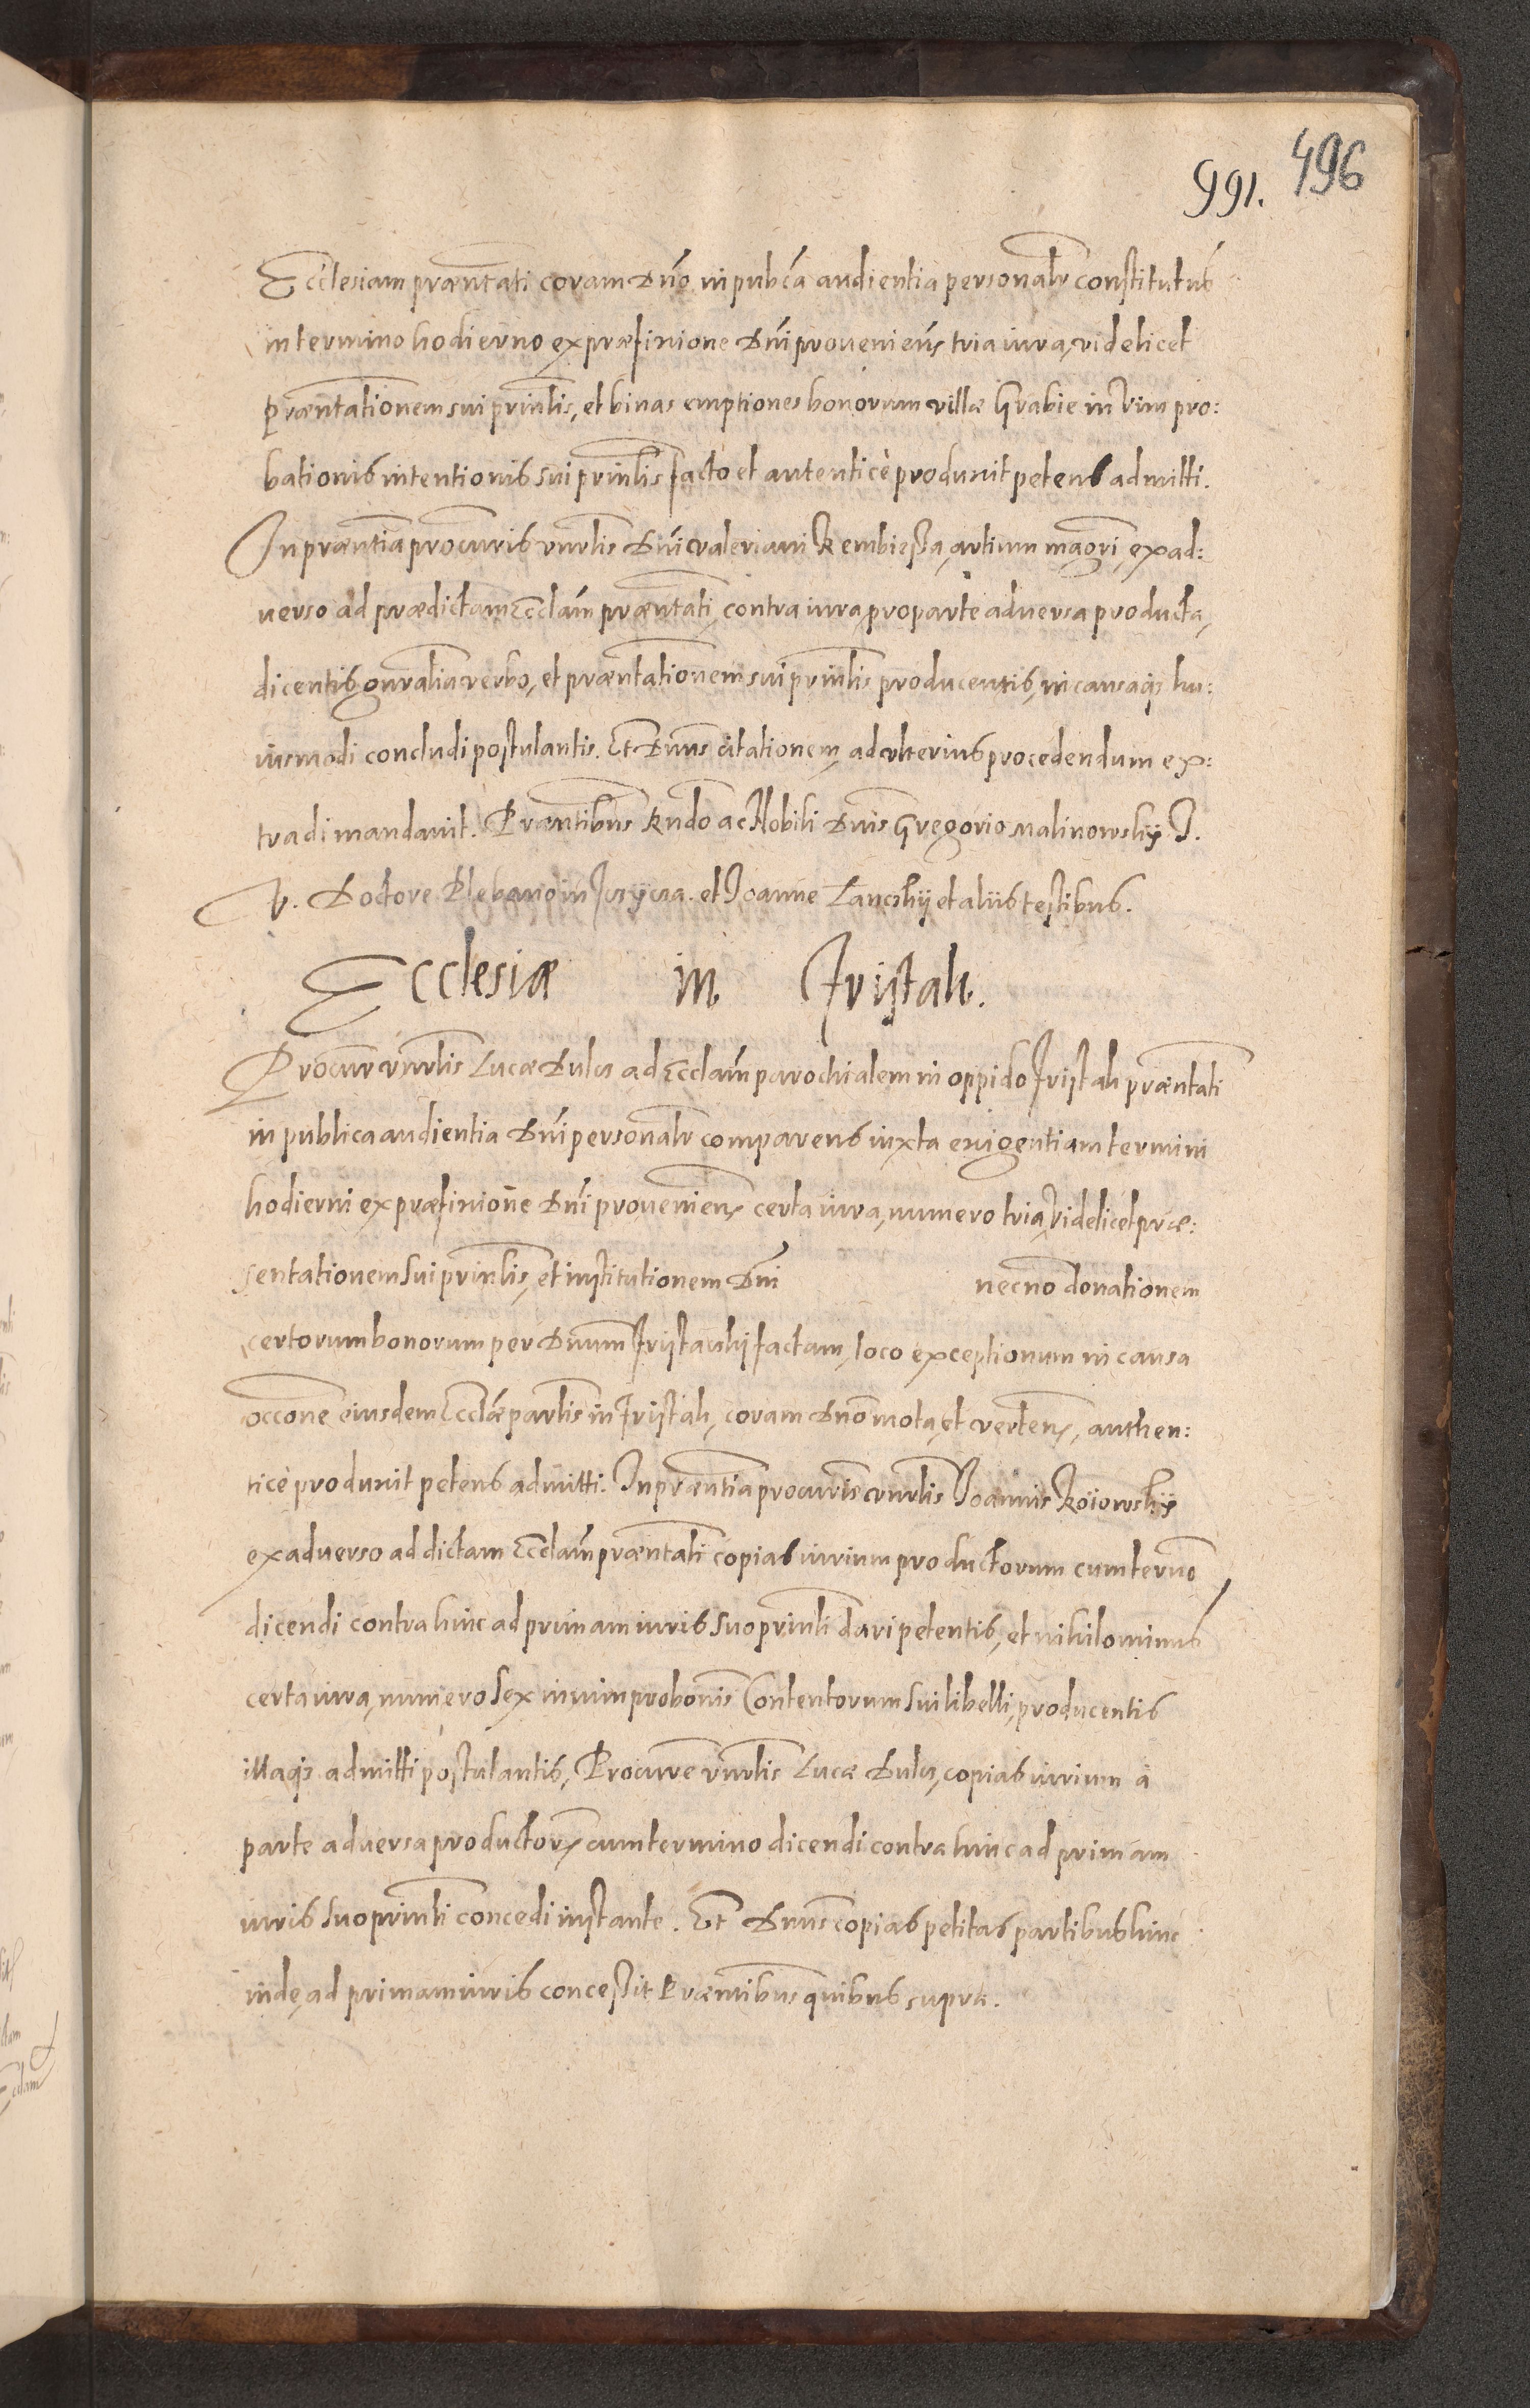 991. 496
Ecclesiam præntati coram Dno in pubca audientia personalr constitutus
in termino hodierno ex præfinione Dni proueniens tria iura, videlicet
Præntationem sui prinlis, et binas emptiones bonorum villæ Grabie in vim pro:
bationis intentionis sui prinlis facto et autenticè produxit petens admitti.
In præntia procuris vnrlis Dni Valeriani artium magri, ex ad:
uerso ad prædictam Ecclam præntati, contra iura pro parte aduersa producta,
dicentis gnralia verbo, et præntationem sui prinlis producentis, in causaqз hu:
iusmodi concludi postulantis. Et Dnus citationem ad vlterius procedendum ex:
tradi mandauit. Præntibus Rndo ac Nobili Dnis Gregorio Malinowskÿ J.
V. Doctore Plebano in et Joanne et aliis testibus.
Ecclesiæ in Fristah.
Procur vnrlis Lucæ Dulcz ad Ecclam parochialem in oppido Fristah præntati
in publica audientia Dni personalr comparens iuxta exigentiam termini
hodierni ex præfinione Dni proueniens certa iura, numero tria, videlicet præ:
sentationem sui prinlis, et institutionem Dni necno donationem
certorum bonorum per Dnum factam, loco exceptionum in causa
occone eiusdem Ecclæ parlis in Fristah, coram Dno mota, et verten, authen:
ticè produxit petens admitti. In præntia procuris vnrlis Joannis Koiowskÿ
ex aduerso ad dictam Ecclam præntati copias iurium productorum cum termo
dicendi contra hinc ad primam iuris suo prinli dari petentis, et nihilominus
certa iura, numero sex in vim probonis Contentorum sui libelli, producentis
illaqз admitti postulantis, Procure vnrlis Lucæ Dulcz, copias iurium à
parte aduersa productor cum termino dicendi contra hinc ad primam
iuris suo prinli concedi instante. Et Dnus copias petitas partibus hinc
inde, ad primam iuris concessit Præntibus quibus supra.